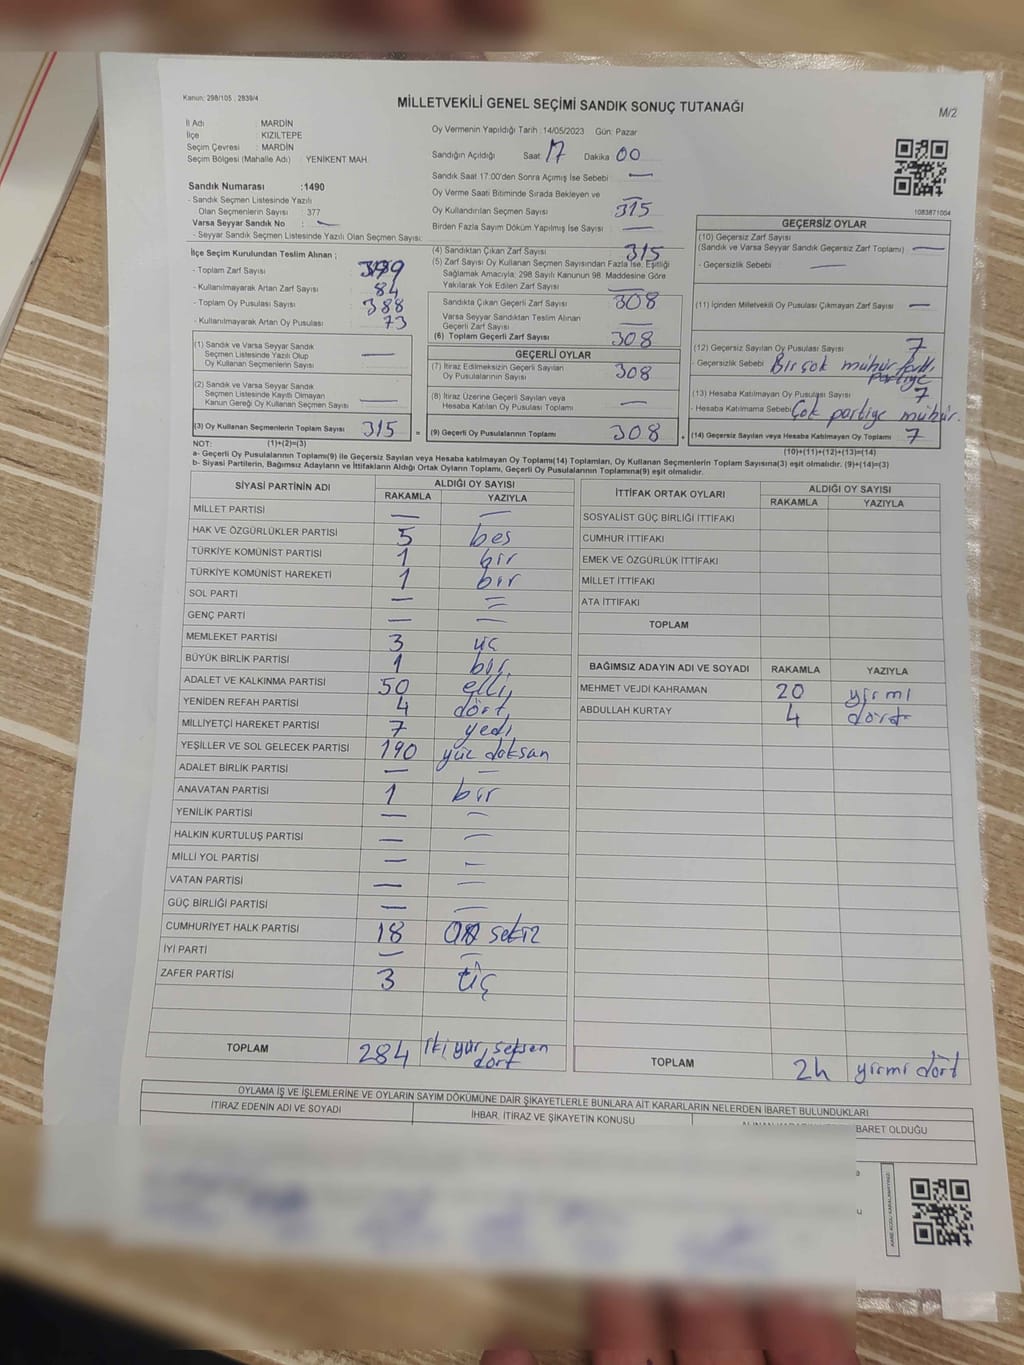 Kanun; 298/105 ; 2839/4
MİLLETVEKİLİ GENEL SEÇİMİ SANDIK SONUÇ TUTANAĞI
M/2
İl Adı : MARDİN
İlçe KIZILTEPE
Seçim Çevresi : MARDİN
Seçim Bölgesi (Mahalle Adı) : YENİKENT MAH.
Sandık Numarası :1490
- Sandık Seçmen Listesinde Yazılı
Olan Seçmenlerin Sayısı : 377
Varsa Seyyar Sandık No : —
- Seyyar Sandık Seçmen Listesinde Yazılı Olan Seçmen Sayısı:
Oy Vermenin Yapıldığı Tarih :14/05/2023 Gün: Pazar
Sandığın Açıldığı Saat 17 Dakika 00
Sandık Saat 17:00'den Sonra Açımış İse Sebebi —
Oy Verme Saati Bitiminde Sırada Bekleyen ve —
Oy Kullandırılan Seçmen Sayısı 315
Birden Fazla Sayım Döküm Yapılmış İse Sayısı —
1083871004
İlçe Seçim Kurulundan Teslim Alınan ;
- Toplam Zarf Sayısı
- Kullanılmayarak Artan Zarf Sayısı 84
- Toplam Oy Pusulası Sayısı 388
- Kullanılmayarak Artan Oy Pusulası 73
(1) Sandık ve Varsa Seyyar Sandık
Seçmen Listesinde Yazılı Olup
Oy Kullananların Seçmenlerin Sayısı —
(2) Sandık ve Varsa Seyyar Sandık
Seçmen Listesinde Kayıtlı Olmayan
Kanun Gereği Oy Kullanan Seçmen Sayısı —
(3) Oy Kullanan Seçmenlerin Toplam Sayısı 315 =
(4) Sandıktan Çıkan Zarf Sayısı 315
(5) Zarf Sayısı Oy Kullanan Seçmen Sayısından Fazla İse, Eşitliği
Sağlamak Amacıyla; 298 Sayılı Kanunun 98. Maddesine Göre
Yakılarak Yok Edilen Zarf Sayısı —
Sandıkta Çıkan Geçerli Zarf Sayısı 308
Varsa Seyyar Sandıktan Teslim Alınan
Geçerli Zarf Sayısı —
(6) Toplam Geçerli Zarf Sayısı 308
GEÇERLİ OYLAR
(7) İtiraz Edilmeksizin Geçerli Sayılan
Oy Pusulalarının Sayısı 308
(8) İtiraz Üzerine Geçerli Sayılan veya
Hesaba Katılan Oy Pusulası Toplamı —
(9) Geçerli Oy Pusulalarının Toplamı 308 +
GEÇERSİZ OYLAR
(10) Geçersiz Zarf Sayısı
(Sandık ve Varsa Seyyar Sandık Geçersiz Zarf Toplamı) —
- Geçersizlik Sebebi : —
(11) İçinden Milletvekili Oy Pusulası Çıkmayan Zarf Sayısı —
(12) Geçersiz Sayılan Oy Pusulası Sayısı 7
- Geçersizlik Sebebi Birçok mühür farklı
partiye
(13) Hesaba Katılmayan Oy Pusulası Sayısı 7
- Hesaba Katılmama Sebebi Çok partiye mühür.
(14) Geçersiz Sayılan veya Hesaba Katılmayan Oy Toplamı 7
NOT: (1)+(2)=(3)
(10)+(11)+(12)+(13)=(14)
a- Geçerli Oy Pusulalarının Toplamı(9) ile Geçersiz Sayılan veya Hesaba katılmayan Oy Toplamı(14) Toplamları, Oy Kullanan Seçmenlerin Toplam Sayısına(3) eşit olmalıdır. (9)+(14)=(3)
b- Siyasi Partilerin, Bağımsız Adayların ve İttifakların Aldığı Ortak Oyların Toplamı, Geçerli Oy Pusulalarının Toplamına(9) eşit olmalıdır.
SİYASİ PARTİNİN ADI ALDIĞI OY SAYISI
RAKAMLA YAZIYLA
MİLLET PARTİSİ — —
HAK VE ÖZGÜRLÜKLER PARTİSİ 5 beş
TÜRKİYE KOMÜNİST PARTİSİ 1 bir
TÜRKİYE KOMÜNİST HAREKETİ 1 bir
SOL PARTİ — =
GENÇ PARTİ — —
MEMLEKET PARTİSİ 3 üç
BÜYÜK BİRLİK PARTİSİ 1 bir
ADALET VE KALKINMA PARTİSİ 50 elli
YENİDEN REFAH PARTİSİ 4 dört
MİLLİYETÇİ HAREKET PARTİSİ 7 yedi
YEŞİLLER VE SOL GELECEK PARTİSİ 190 yüz doksan
ADALET BİRLİK PARTİSİ — —
ANAVATAN PARTİSİ 1 bir
YENİLİK PARTİSİ — —
HALKIN KURTULUŞ PARTİSİ — —
MİLLİ YOL PARTİSİ — —
VATAN PARTİSİ — —
GÜÇ BİRLİĞİ PARTİSİ — —
CUMHURİYET HALK PARTİSİ 18 on sekiz
İYİ PARTİ — —
ZAFER PARTİSİ 3 üç
TOPLAM 284 iki yüz seksen
dört
İTTİFAK ORTAK OYLARI ALDIĞI OY SAYISI
RAKAMLA YAZIYLA
SOSYALİST GÜÇ BİRLİĞİ İTTİFAKI
CUMHUR İTTİFAKI
EMEK VE ÖZGÜRLÜK İTTİFAKI
MİLLET İTTİFAKI
ATA İTTİFAKI
TOPLAM
BAĞIMSIZ ADAYIN ADI VE SOYADI RAKAMLA YAZIYLA
MEHMET VEJDİ KAHRAMAN 20 yirmi
ABDULLAH KURTAY 4 dört
TOPLAM 24 yirmi dört
OYLAMA İŞ VE İŞLEMLERİNE VE OYLARIN SAYIM DÖKÜMÜNE DAİR ŞİKAYETLERLE BUNLARA AİT KARARLARIN NELERDEN İBARET BULUNDUKLARI
İTİRAZ EDENİN ADI VE SOYADI
İHBAR, İTİRAZ VE ŞİKAYETİN KONUSU
BARET OLDUĞU